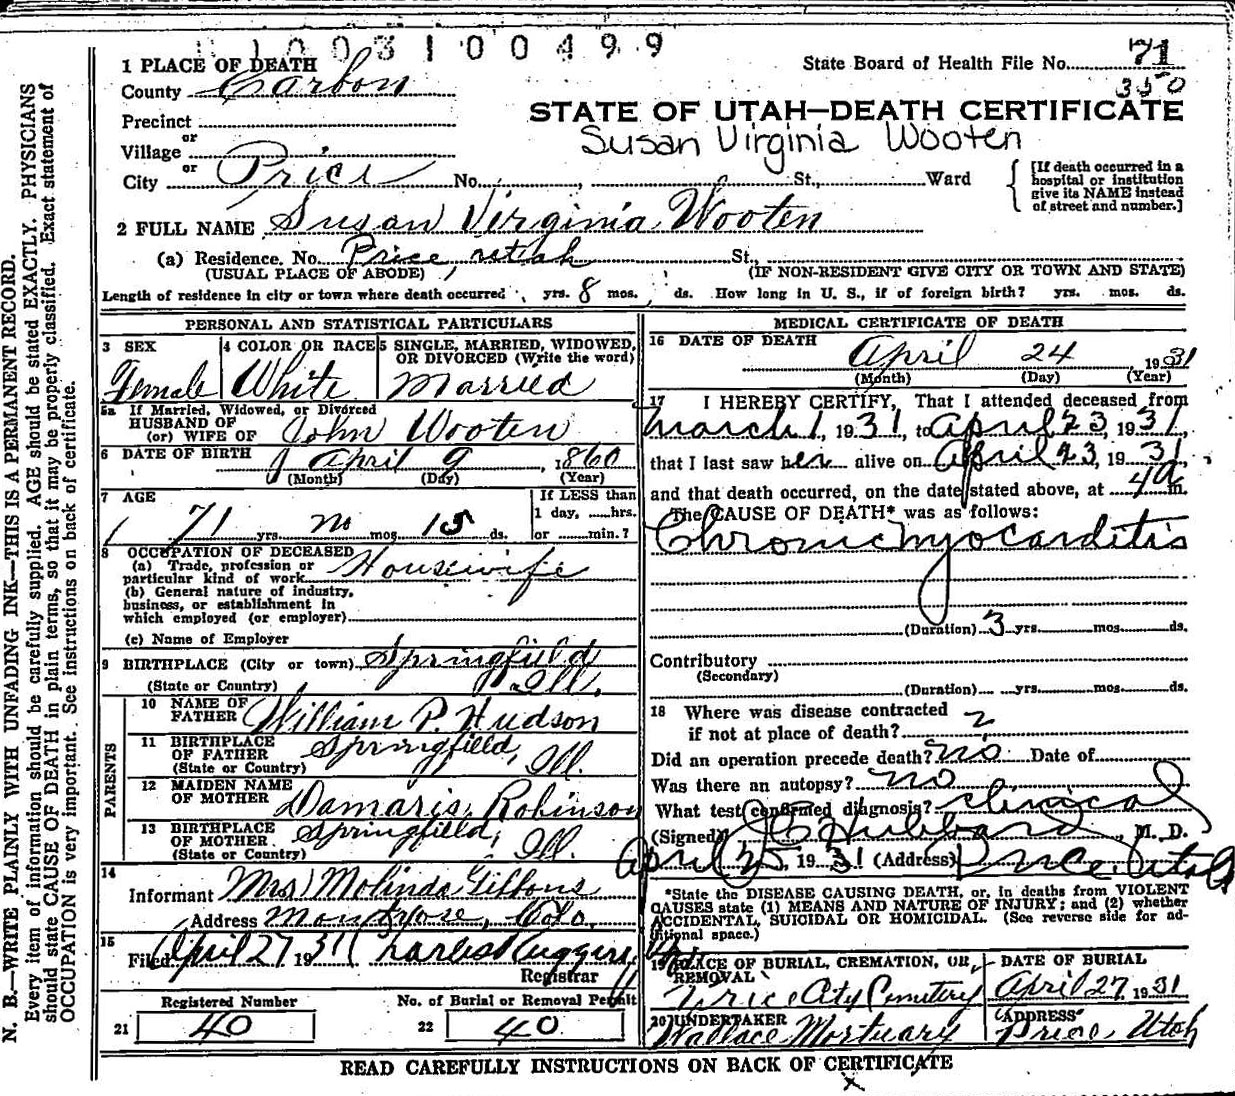 1 0 0 3 1 0 0 4 9 9
State Board of Health File No. 71
350
1 PLACE OF DEATH
County Carbon
STATE OF UTAH—DEATH CERTIFICATE
Susan Virginia Wooten
Precinct
or
Village
or
City Price No. , St., Ward
[If death occurred in a hospital or institution give its NAME instead of street and number.]
2 FULL NAME Susan Virginia Wooten
(a) Residence. No. Price Utah St.,
(USUAL PLACE OF ABODE) (IF NON-RESIDENT GIVE CITY OR TOWN AND STATE)
Length of residence in city or town where death occurred yrs. 8 mos. ds. How long in U. S., if of foreign birth? yrs. mos. ds.
PERSONAL AND STATISTICAL PARTICULARS
3 SEX 4 COLOR OR RACE 5 SINGLE, MARRIED, WIDOWED, OR DIVORCED (Write the word)
Female White Married
5a If Married, Widowed, or Divorced
HUSBAND OF
(or) WIFE OF John Wooten
6 DATE OF BIRTH April 9, 1860
(Month) (Day) (Year)
7 AGE If LESS than
1 day, hrs.
71 yrs. no mos. 15 ds. or min.?
8 OCCUPATION OF DECEASED
(a) Trade, profession or
particular kind of work Housewife
(b) General nature of industry,
business, or establishment in
which employed (or employer)
(c) Name of Employer
9 BIRTHPLACE (City or town) Springfield
(State or Country) Ill.
PARENTS
10 NAME OF
FATHER William P. Hudson
11 BIRTHPLACE
OF FATHER Springfield, Ill.
(State or Country)
12 MAIDEN NAME
OF MOTHER Damaris Robinson
13 BIRTHPLACE
OF MOTHER Springfield, Ill.
(State or Country)
14
Informant Mrs Molinda Gibbons
Address Montrose, Colo.
15
Filed April 27 1931
Registrar
Registered Number No. of Burial or Removal Permit
21 40 22 40
MEDICAL CERTIFICATE OF DEATH
16 DATE OF DEATH
April 24, 1931
(Month) (Day) (Year)
17 I HEREBY CERTIFY, That I attended deceased from
March 1, 1931, to April 23, 1931,
that I last saw her alive on April 23, 1931,
and that death occurred, on the date stated above, at 4 a m.
The CAUSE OF DEATH* was as follows:
Chronic Myocarditis
(Duration) 3 yrs. mos. ds.
Contributory
(Secondary)
(Duration) yrs. mos. ds.
18 Where was disease contracted
if not at place of death?
Did an operation precede death? no Date of
Was there an autopsy? no
What test confirmed diagnosis? clinical
(Signed) Hubbard, M. D.
April 25, 1931 (Address) Price Utah
*State the DISEASE CAUSING DEATH, or, in deaths from VIOLENT
CAUSES state (1) MEANS AND NATURE OF INJURY; and (2) whether
ACCIDENTAL, SUICIDAL OR HOMICIDAL. (See reverse side for ad-
ditional space.)
19 PLACE OF BURIAL, CREMATION, OR REMOVAL DATE OF BURIAL
Price City Cemetery April 27, 1931
20 UNDERTAKER ADDRESS
Wallace Mortuary Price, Utah
READ CAREFULLY INSTRUCTIONS ON BACK OF CERTIFICATE
x
N. B.—WRITE PLAINLY WITH UNFADING INK—THIS IS A PERMANENT RECORD.
Every item of information should be carefully supplied. AGE should be stated EXACTLY. PHYSICIANS
should state CAUSE OF DEATH in plain terms, so that it may be properly classified. Exact statement of
OCCUPATION is very important. See instructions on back of certificate.